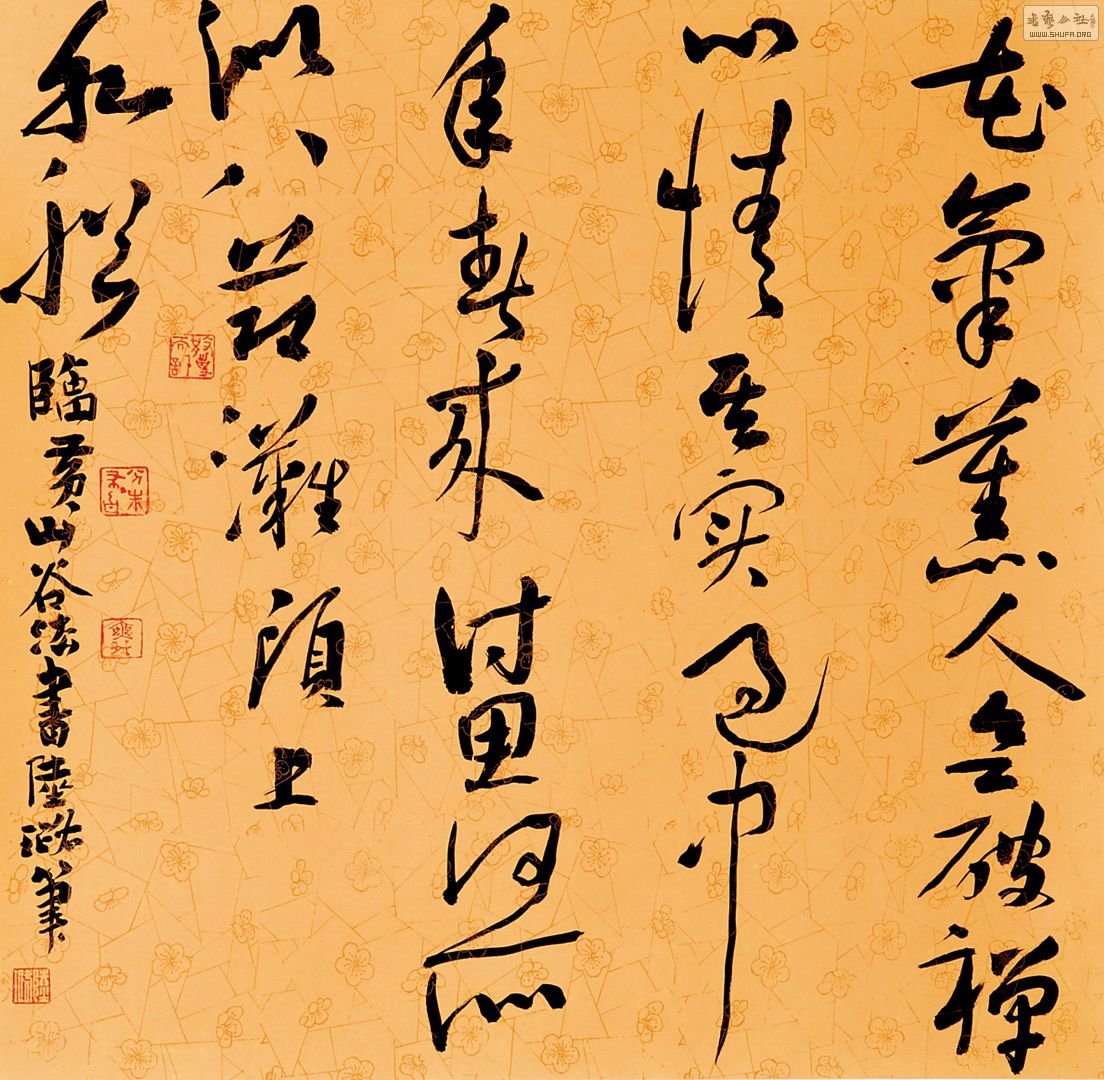 书艺公社
WWW.SHUFA.ORG
花氣薰人欲破禪
心情其实過中
年春來詩思何所
似八節灘頭上
水船
臨黃山谷法書陸筆